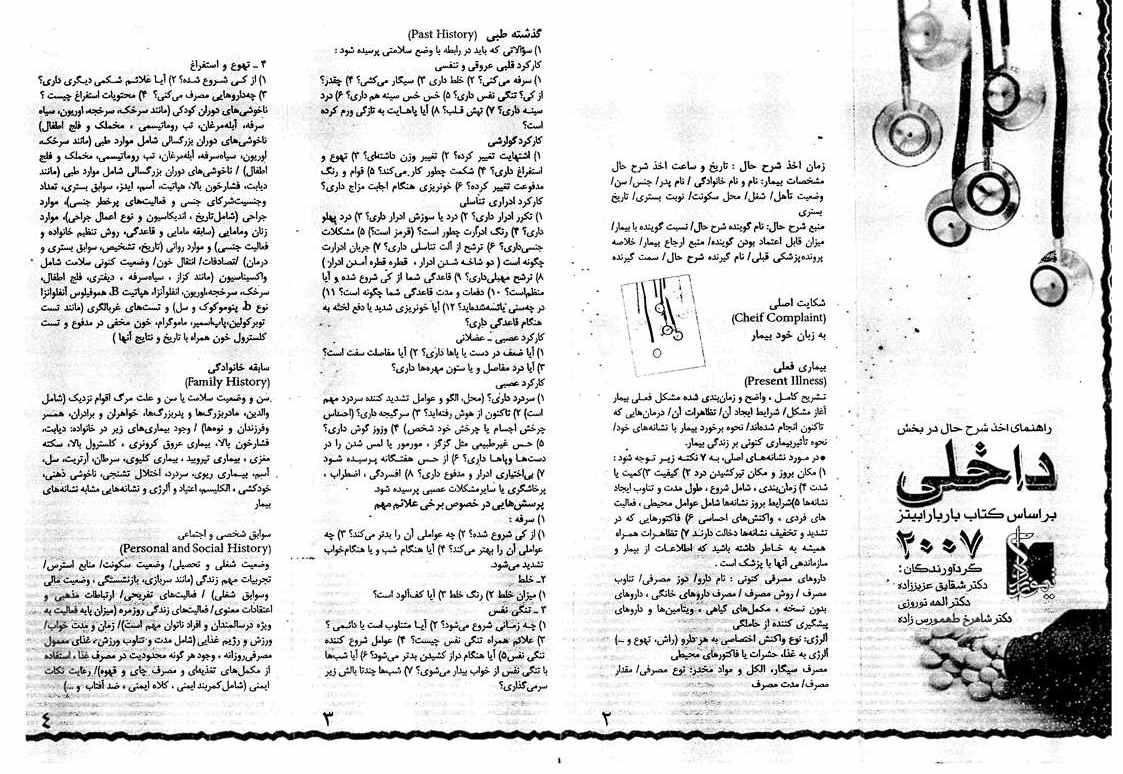 راهنمای اخذ شرح حال در بخش
داخلی
براساس کتاب باربارابیتز
۲۰۰۷
گردآورندگان:
دکتر شقایق عزیززاده
دکتر الهه نوروزی
دکتر شاهرخ طهمورس زاده
زمان اخذ شرح حال : تاریخ و ساعت اخذ شرح حال
مشخصات بیمار: نام و نام خانوادگی / نام پدر/ جنس/ سن/
وضعیت تأهل/ شغل/ محل سکونت/ نوبت بستری/ تاریخ
بستری
منبع شرح حال: نام گوینده شرح حال/ نسبت گوینده با بیمار/
میزان قابل اعتماد بودن گوینده/ منبع ارجاع بیمار/ خلاصه
پرونده‌پزشکی قبلی/ نام گیرنده شرح حال/ سمت گیرنده
شکایت اصلی
(Cheif Complaint)
به زبان خود بیمار
بیماری فعلی
(Present Illness)
تشریح کامل ، واضح و زمان‌بندی شده مشکل فعلی بیمار
آغاز مشکل/ شرایط ایجاد آن/ تظاهرات آن/ درمان‌هایی که
تاکنون انجام شده‌اند/ نحوه برخورد بیمار با نشانه‌های خود/
نحوه تأثیربیماری کنونی بر زندگی بیمار.
●در مورد نشانه‌های اصلی، به ۷ نکته زیر توجه شود :
۱) مکان بروز و مکان تیرکشیدن درد ۲) کیفیت ۳)کمیت یا
شدت ۴) زمان‌بندی ، شامل شروع ، طول مدت و تناوب ایجاد
نشانه‌ها ۵)شرایط بروز نشانه‌ها شامل عوامل محیطی ، فعالیت
های فردی ، واکنش‌های احساسی ۶) فاکتورهایی که در
تشدید و تخفیف نشانه‌ها دخالت دارند ۷) تظاهرات همراه
همیشه به خاطر داشته باشید که اطلاعات از بیمار و
سازماندهی آنها با پزشک است .
داروهای مصرفی کنونی : نام دارو/ دوز مصرفی/ تناوب
مصرف / روش مصرف / مصرف داروهای خانگی ، داروهای
بدون نسخه ، مکمل‌های گیاهی ، ویتامین‌ها و داروهای
پیشگیری کننده از حاملگی
آلرژی: نوع واکنش اختصاصی به هر دارو (راش، تهوع و ...)
آلرژی به غذا، حشرات یا فاکتورهای محیطی
مصرف سیگار، الکل و مواد مخدر: نوع مصرفی/ مقدار
مصرف/ مدت مصرف
۲
گذشته طبی (Past History)
۱) سؤالاتی که باید در رابطه با وضع سلامتی پرسیده شود :
کارکرد قلبی عروقی و تنفسی
۱) سرفه می‌کنی؟ ۲) خلط داری ۳) سیگار می‌کشی؟ ۴) چقدر؟
از کی؟ تنگی نفس داری؟ ۵) خس خس سینه هم داری؟ ۶) درد
سینه داری؟ ۷) تپش قلب؟ ۸) آیا پاهایت به تازگی ورم کرده
است؟
کارکرد گوارشی
۱) اشتهایت تغییر کرده؟ ۲) تغییر وزن داشته‌ای؟ ۳) تهوع و
استفراغ داری؟ ۴) شکمت چطور کار می‌کند؟ ۵) قوام و رنگ
مدفوعت تغییر کرده؟ ۶) خونریزی هنگام اجابت مزاج داری؟
کارکرد ادراری تناسلی
۱) تکرر ادرار داری؟ ۲) درد یا سوزش ادرار داری؟ ۳) درد پهلو
داری؟ ۴) رنگ ادرارت چطور است؟ (قرمز است؟) ۵) مشکلات
جنسی‌داری؟ ۶) ترشح از آلت تناسلی داری؟ ۷) جریان ادرارت
چگونه است ( دو شاخه شدن ادرار ، قطره قطره آمدن ادرار)
۸) ترشح مهبلی‌داری؟ ۹) قاعدگی شما از کی شروع شده و آیا
منظم‌است؟ ۱۰) دفعات و مدت قاعدگی شما چگونه است؟ ۱۱)
در چه‌سنی یائسه‌شده‌اید؟ ۱۲) آیا خونریزی شدید یا دفع لخته به
هنگام قاعدگی داری؟
کارکرد عصبی ـ عضلانی
۱) آیا ضعف در دست یا پاها داری؟ ۲) آیا مفاصلت سفت است؟
۳) آیا درد مفاصل و یا ستون مهره‌ها داری؟
کارکرد عصبی
۱) سردرد داری؟ (محل، الگو و عوامل تشدید کننده سردرد مهم
است) ۲) تاکنون از هوش رفته‌اید؟ ۳) سرگیجه داری؟ (احساس
چرخش اجسام یا چرخش خود شخص) ۴) وزوز گوش داری؟
۵) حس غیرطبیعی مثل گزگز ، مورمور یا لمس شدن را در
دست‌ها وپاها داری؟ ۶) از حس هفتگانه پرسیده شود
۷) بی‌اختیاری ادرار و مدفوع داری؟ ۸) افسردگی ، اضطراب ،
پرخاشگری یا سایرمشکلات عصبی پرسیده شود.
پرسش‌هایی در خصوص برخی علائم مهم
۱) سرفه :
۱) از کی شروع شده؟ ۲) چه عواملی آن را بدتر می‌کند؟ ۳) چه
عواملی آن را بهتر می‌کند؟ ۴) آیا هنگام شب و یا هنگام‌خواب
تشدید می‌شود.
۲ـ خلط
۱) میزان خلط ۲) رنگ خلط ۳) آیا کف‌آلود است؟
۳ ـ تنگی نفس
۱) چه زمانی شروع می‌شود؟ ۲) آیا متناوب است یا دائمی ؟
۳) علائم همراه تنگی نفس چیست؟ ۴) عوامل شروع کننده
تنگی نفس۵) آیا هنگام دراز کشیدن بدتر می‌شود؟ ۶) آیا شب‌ها
با تنگی نفس از خواب بیدار می‌شوی؟ ۷) شب‌ها چندتا بالش زیر
سرمی‌گذاری؟
۳
۴ ـ تهوع و استفراغ
۱) از کی شروع شده؟ ۲) آیا علائم شکمی دیگری داری؟
۳) چه‌داروهایی مصرف می‌کنی؟ ۴) محتویات استفراغ چیست ؟
ناخوشی‌های دوران کودکی (مانند سرخک، سرخجه، اوریون، سیاه
سرفه، آبله‌مرغان، تب روماتیسمی ، مخملک و فلج اطفال)
ناخوشی‌های دوران بزرگسالی شامل موارد طبی (مانند سرخک،
اوریون، سیاه‌سرفه، آبله‌مرغان، تب روماتیسمی، مخملک و فلج
اطفال) / ناخوشی‌های دوران بزرگسالی شامل موارد طبی (مانند
دیابت، فشارخون بالا، هپاتیت، آسم، ایدز، سوابق بستری، تعداد
وجنسیت‌شرکای جنسی و فعالیت‌های پرخطر جنسی)، موارد
جراحی (شامل‌تاریخ ، اندیکاسیون و نوع اعمال جراحی)، موارد
زنان ومامایی (سابقه مامایی و قاعدگی، روش تنظیم خانواده و
فعالیت جنسی) و موارد روانی (تاریخ، تشخیص، سوابق بستری و
درمان) /تصادفات/ انتقال خون/ وضعیت کنونی سلامت شامل
واکسیناسیون (مانند کزاز ، سیاه‌سرفه ، دیفتری، فلج اطفال،
سرخک، سرخجه،اوریون، انفلوآنزا، هپاتیت B، هموفیلوس آنفلوآنزا
نوع b، پنوموکوک و سل) و تست‌های غربالگری (مانند تست
توبرکولین،پاپ‌اسمیر، ماموگرام، خون مخفی در مدفوع و تست
کلسترول خون همراه با تاریخ و نتایج آنها )
سابقه خانوادگی
(Family History)
سن و وضعیت سلامت یا سن و علت مرگ اقوام نزدیک (شامل
والدین، مادربزرگ‌ها و پدربزرگ‌ها، خواهران و برادران، همسر
وفرزندان و نوه‌ها) / وجود بیماری‌های زیر در خانواده: دیابت،
فشارخون بالا، بیماری عروق کرونری ، کلسترول بالا، سکته
مغزی ، بیماری تیروئید ، بیماری کلیوی، سرطان، آرتریت، سل،
آسم، بیماری ریوی، سردرد، اختلال تشنجی، ناخوشی ذهنی،
خودکشی ، الکلیسم، اعتیاد و آلرژی و نشانه‌هایی مشابه نشانه‌های
بیمار
سوابق شخصی و اجتماعی
(Personal and Social History)
وضعیت شغلی و تحصیلی/ وضعیت سکونت/ منابع استرس/
تجربیات مهم زندگی (مانند سربازی، بازنشستگی ، وضعیت مالی
وسوابق شغلی) / فعالیت‌های تفریحی/ ارتباطات مذهبی و
اعتقادات معنوی/ فعالیت‌های زندگی روزمره (میزان پایه فعالیت به
ویژه درسالمندان و افراد ناتوان مهم است)/ زمان و مدت خواب/
ورزش و رژیم غذایی (شامل مدت و تناوب ورزش، غذای معمول
مصرفی‌روزانه ، وجود هر گونه محدودیت در مصرف غذا ، استفاده
از مکمل‌های تغذیه‌ای و مصرف چای و قهوه)/ رعایت نکات
ایمنی (شامل کمربند ایمنی ، کلاه ایمنی ، ضد آفتاب و ...)
٤
۱